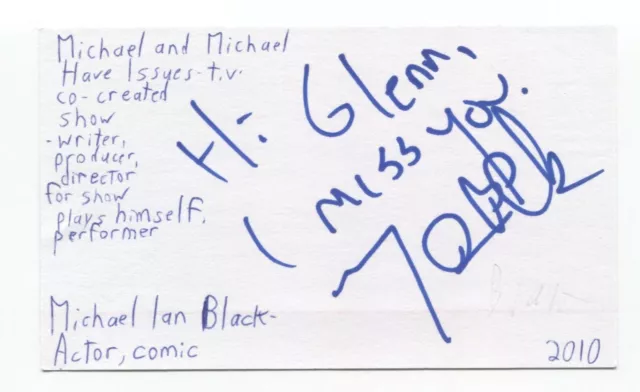 Michael and Michael
Have Issyes-t.v.
co-created
show
-writer,
producer,
director
for show
plays himself,
performer
Hi Glenn,
I miss you.
Michael Ian Black-
Actor, comic
2010